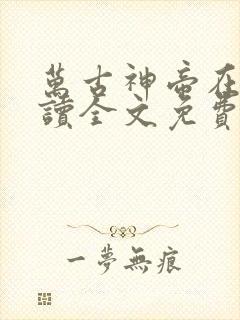 萬古神帝在
讀全文免費
一夢無痕